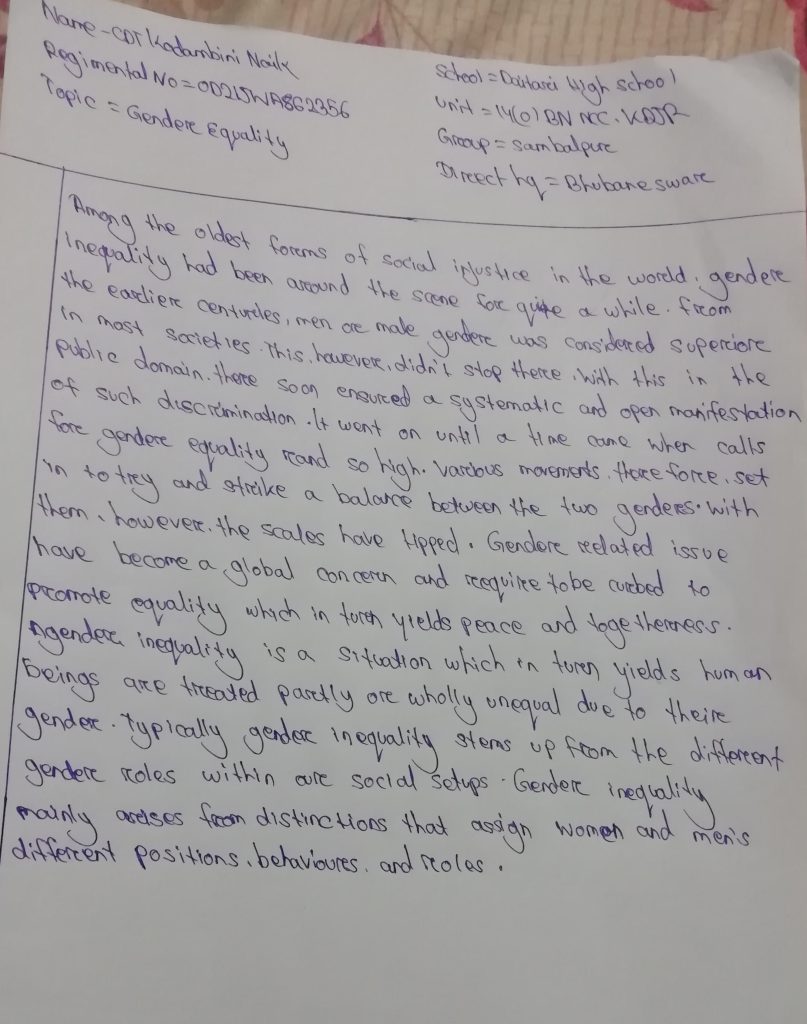 Name - CDT Kadambini Naik
Regimental No = OD21JWA862356
Topic = Gendere Equality
School = Daitari High school
Unit = 14(O) BN NCC. KDJR
Group = sambalpure
Direct hq = Bhubanesware
Among the oldest forems of social injustice in the woreld, gendere
inequality had been around the scene fore quite a while. From
the eardiere centuries, men ore male gendere was considered superiore
in most societies. This, however, didn't stop there. With this in the
public domain. there soon ensured a systematic and open manifestation
of such discrimination. It went on until a time came when calls
fore gendere equality rand so high. Various movements. there force, set
in to trey and strike a balance between the two genderes. with
them, however, the scales have tipped. Gendere related issue
have become a global concern and reequire tobe curbed to
promote equality which in turen yields peace and togetherness.
ngendere inequality is a situation which in turen yields human
beings are treated partly ore wholly unequal due to theire
gendere. Typically gendere inequality stems up from the different
gendere roles within oure social setups. Gendere inequality
mainly areises from distinctions that assign women and men's
different positions, behavioures, and roles.